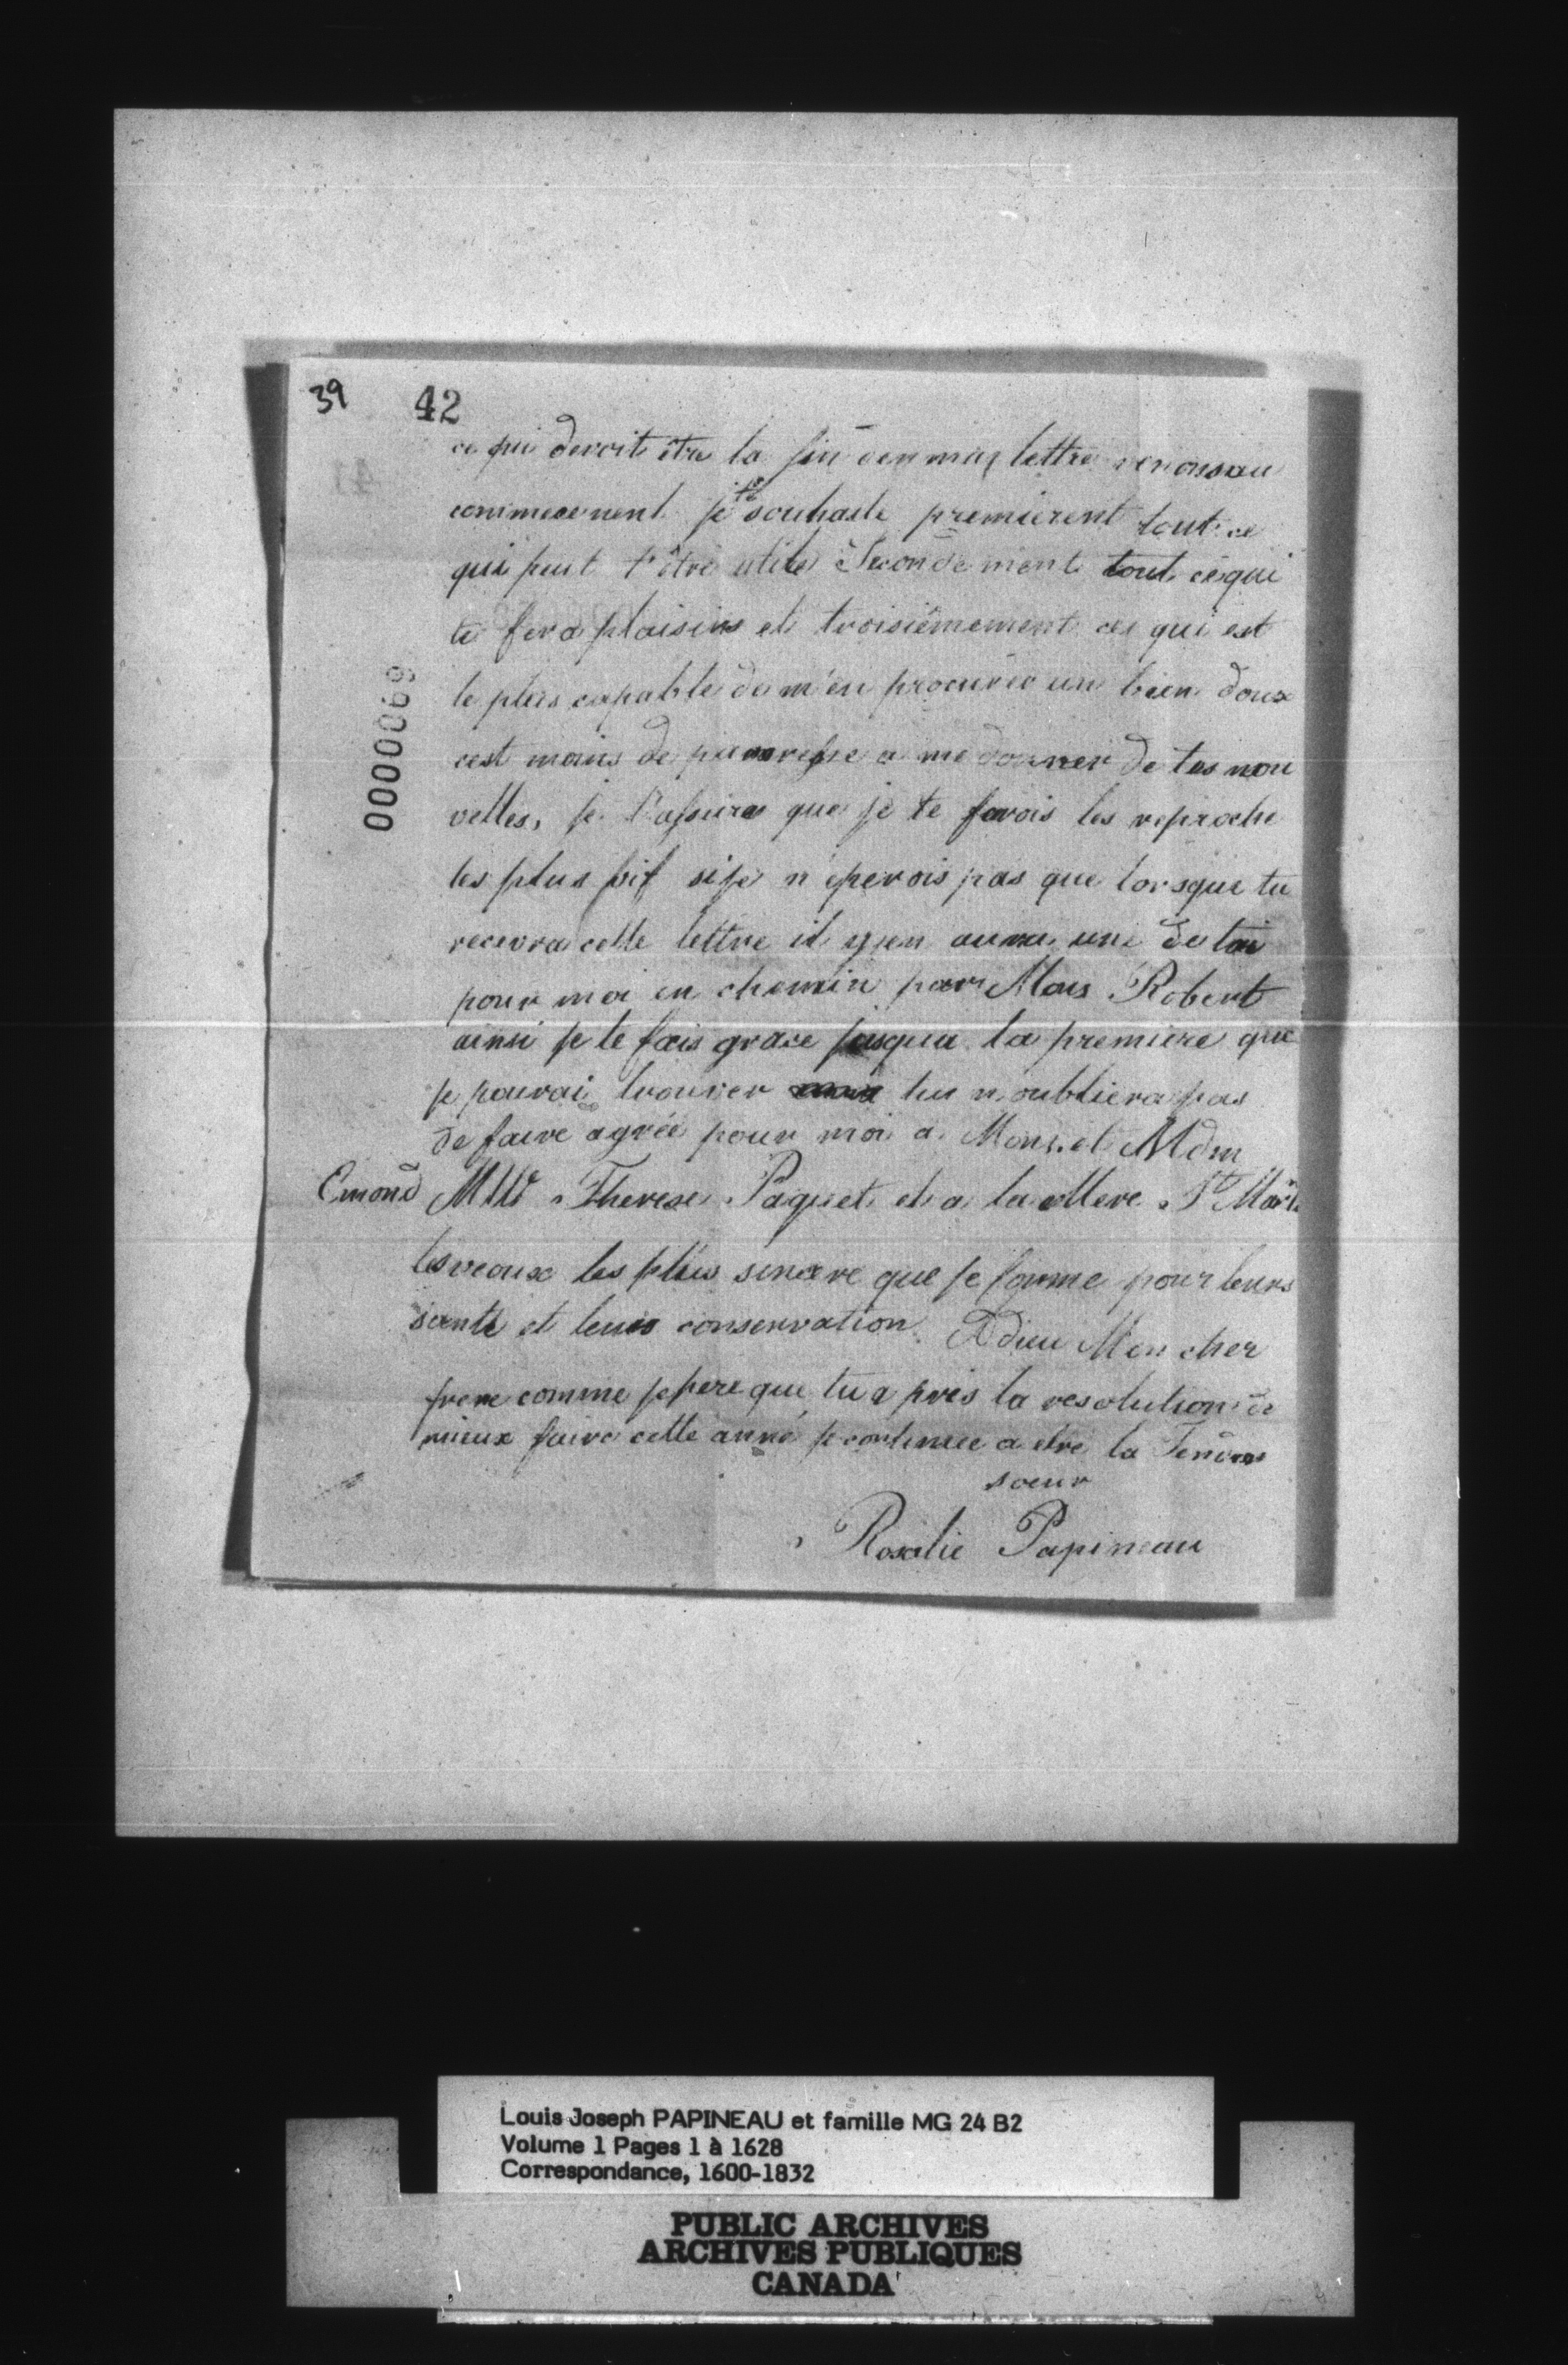 39 42
ce qui devoit être la fin de ma lettre venons au
commecement je te souhaite premierent tout ce
qui peut t'être utile Secondement tout ce qui
te fera plaisirs et troisiêmement ce qui est
le plus capable de m'en procurer un bien doux
cest moins de parresse a me donner de tes nou
velles, je t'assure que je te ferois les reproche
les plus vif si je n'éperois pas que lorsque tu
recevra cette lettre il y en aura une de toi
pour moi en chemin par Mons Robert
ainsi je te fais grace jusqua la premiere que
je pourai trouver tu n'oubliera pas
de faire agrée pour moi a Mons. et Mdm
Emond Mlle Therese Paquet et a la Mere St
les veaux les plus sincere que je forme pour leurs
santé et leurs conservation. Adieu Mon cher
frere comme jespere que tu a pris la resolution de
mieux faire cette anné je continue a etre ta Tendre
soeur
Rosalie Papineau
0000069
Louis Joseph PAPINEAU et famille MG 24 B2
Volume 1 Pages 1 à 1628
Correspondance, 1600-1832
PUBLIC ARCHIVES
ARCHIVES PUBLIQUES
CANADA